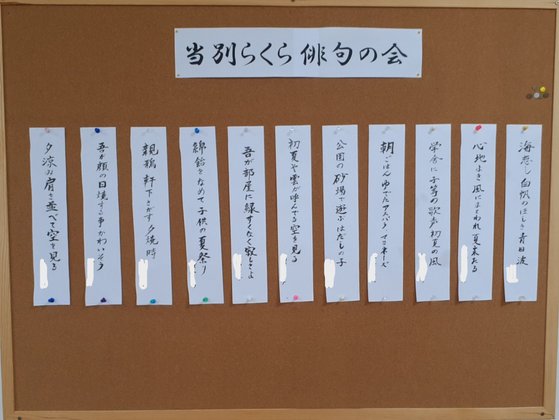 当別らくら俳句の会
海恋し 白帆のはしる 青田波
心地よき風にまとわれ夏来たる
学舎に子等の歌声初夏の風
朝ごはんゆでたアスパラマヨネーズ
公園の砂場で遊ぶはだしの子
初夏や雲が呼んでる空を見る
吾が部屋に緑すくなく寂しさよ
綿飴をなめて子供の夏祭り
親鶏 軒下さがす夕焼時
吾が顔の日焼する事かわいそう
夕涼み肩を並べて空を見る